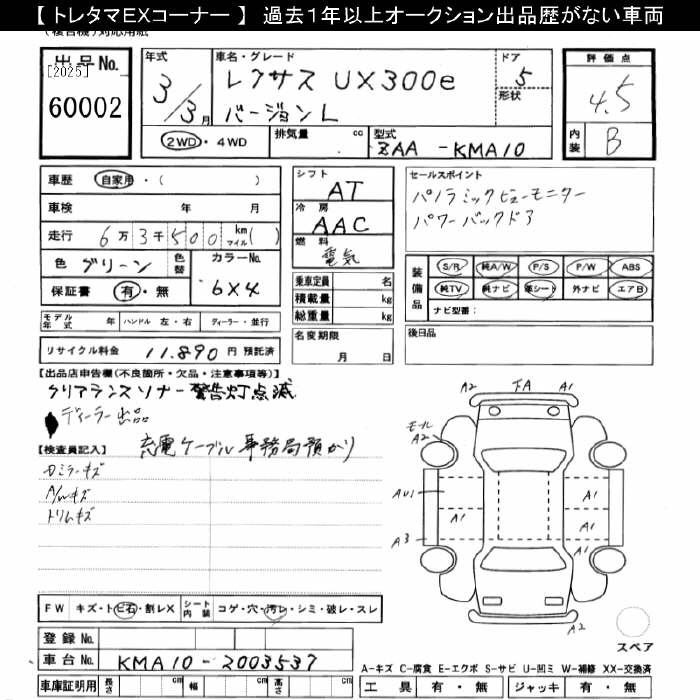 【 トレタマEXコーナー 】 過去1年以上オークション出品歴がない車両
出品No.
[2025]
60002
年式
3/3月
車名・グレード
レクサス UX300e
バージョンL
ドア
5
形状
2WD・4WD
排気量 cc
型式
ZAA-KMA10
評価点
4.5
内装
B
車歴 自家用・( )
車検 年 月
走行 6万3千500 km マイル( )
色 グリーン 色替 カラーNo.
保証書 有・無 6X4
モデル年式 年 ハンドル 左・右 ディーラー・並行
リサイクル料金 11,890円 預託済
シフト
AT
冷房
AAC
燃料
電気
乗車定員 名
積載量 kg
総重量 kg
名変期限
月 日
セールスポイント
パノラミックビューモニター
パワーバックドア
装備品
S/R 純A/W P/S P/W ABS
純TV 純ナビ 革シート 外ナビ エアB
ナビ型番:
後日品
【出品店申告欄(不良箇所・欠品・注意事項等)】
クリアランスソナー警告灯点滅
ディーラー出品
充電ケーブル事務局預かり
【検査員記入】
ミラーキズ
A/Wキズ
トリムキズ
A2 下A A1
モール
A2
AU1
A1
A1
A1
A3
A1
A2
スペア
FW キズ・トビ石・割レX シート内装 コゲ・穴・汚レ・シミ・破レ・スレ
登録No.
車台No. KMA10-2003537
車庫証明用 長さ cm 幅 cm 高さ cm
A-キズ C-腐食 E-エクボ S-サビ U-凹ミ W-補修 XX-交換済
工具 有・無 ジャッキ 有・無